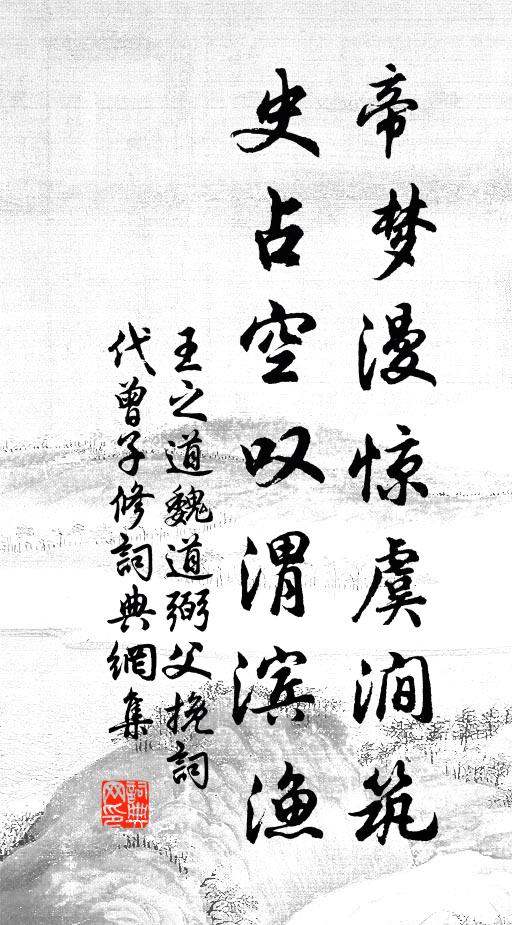 帝梦漫惊虞涧筑
史占空叹渭滨渔
王之道魏道弼父挽詞
代曾子修詞典網集
詞典
网印